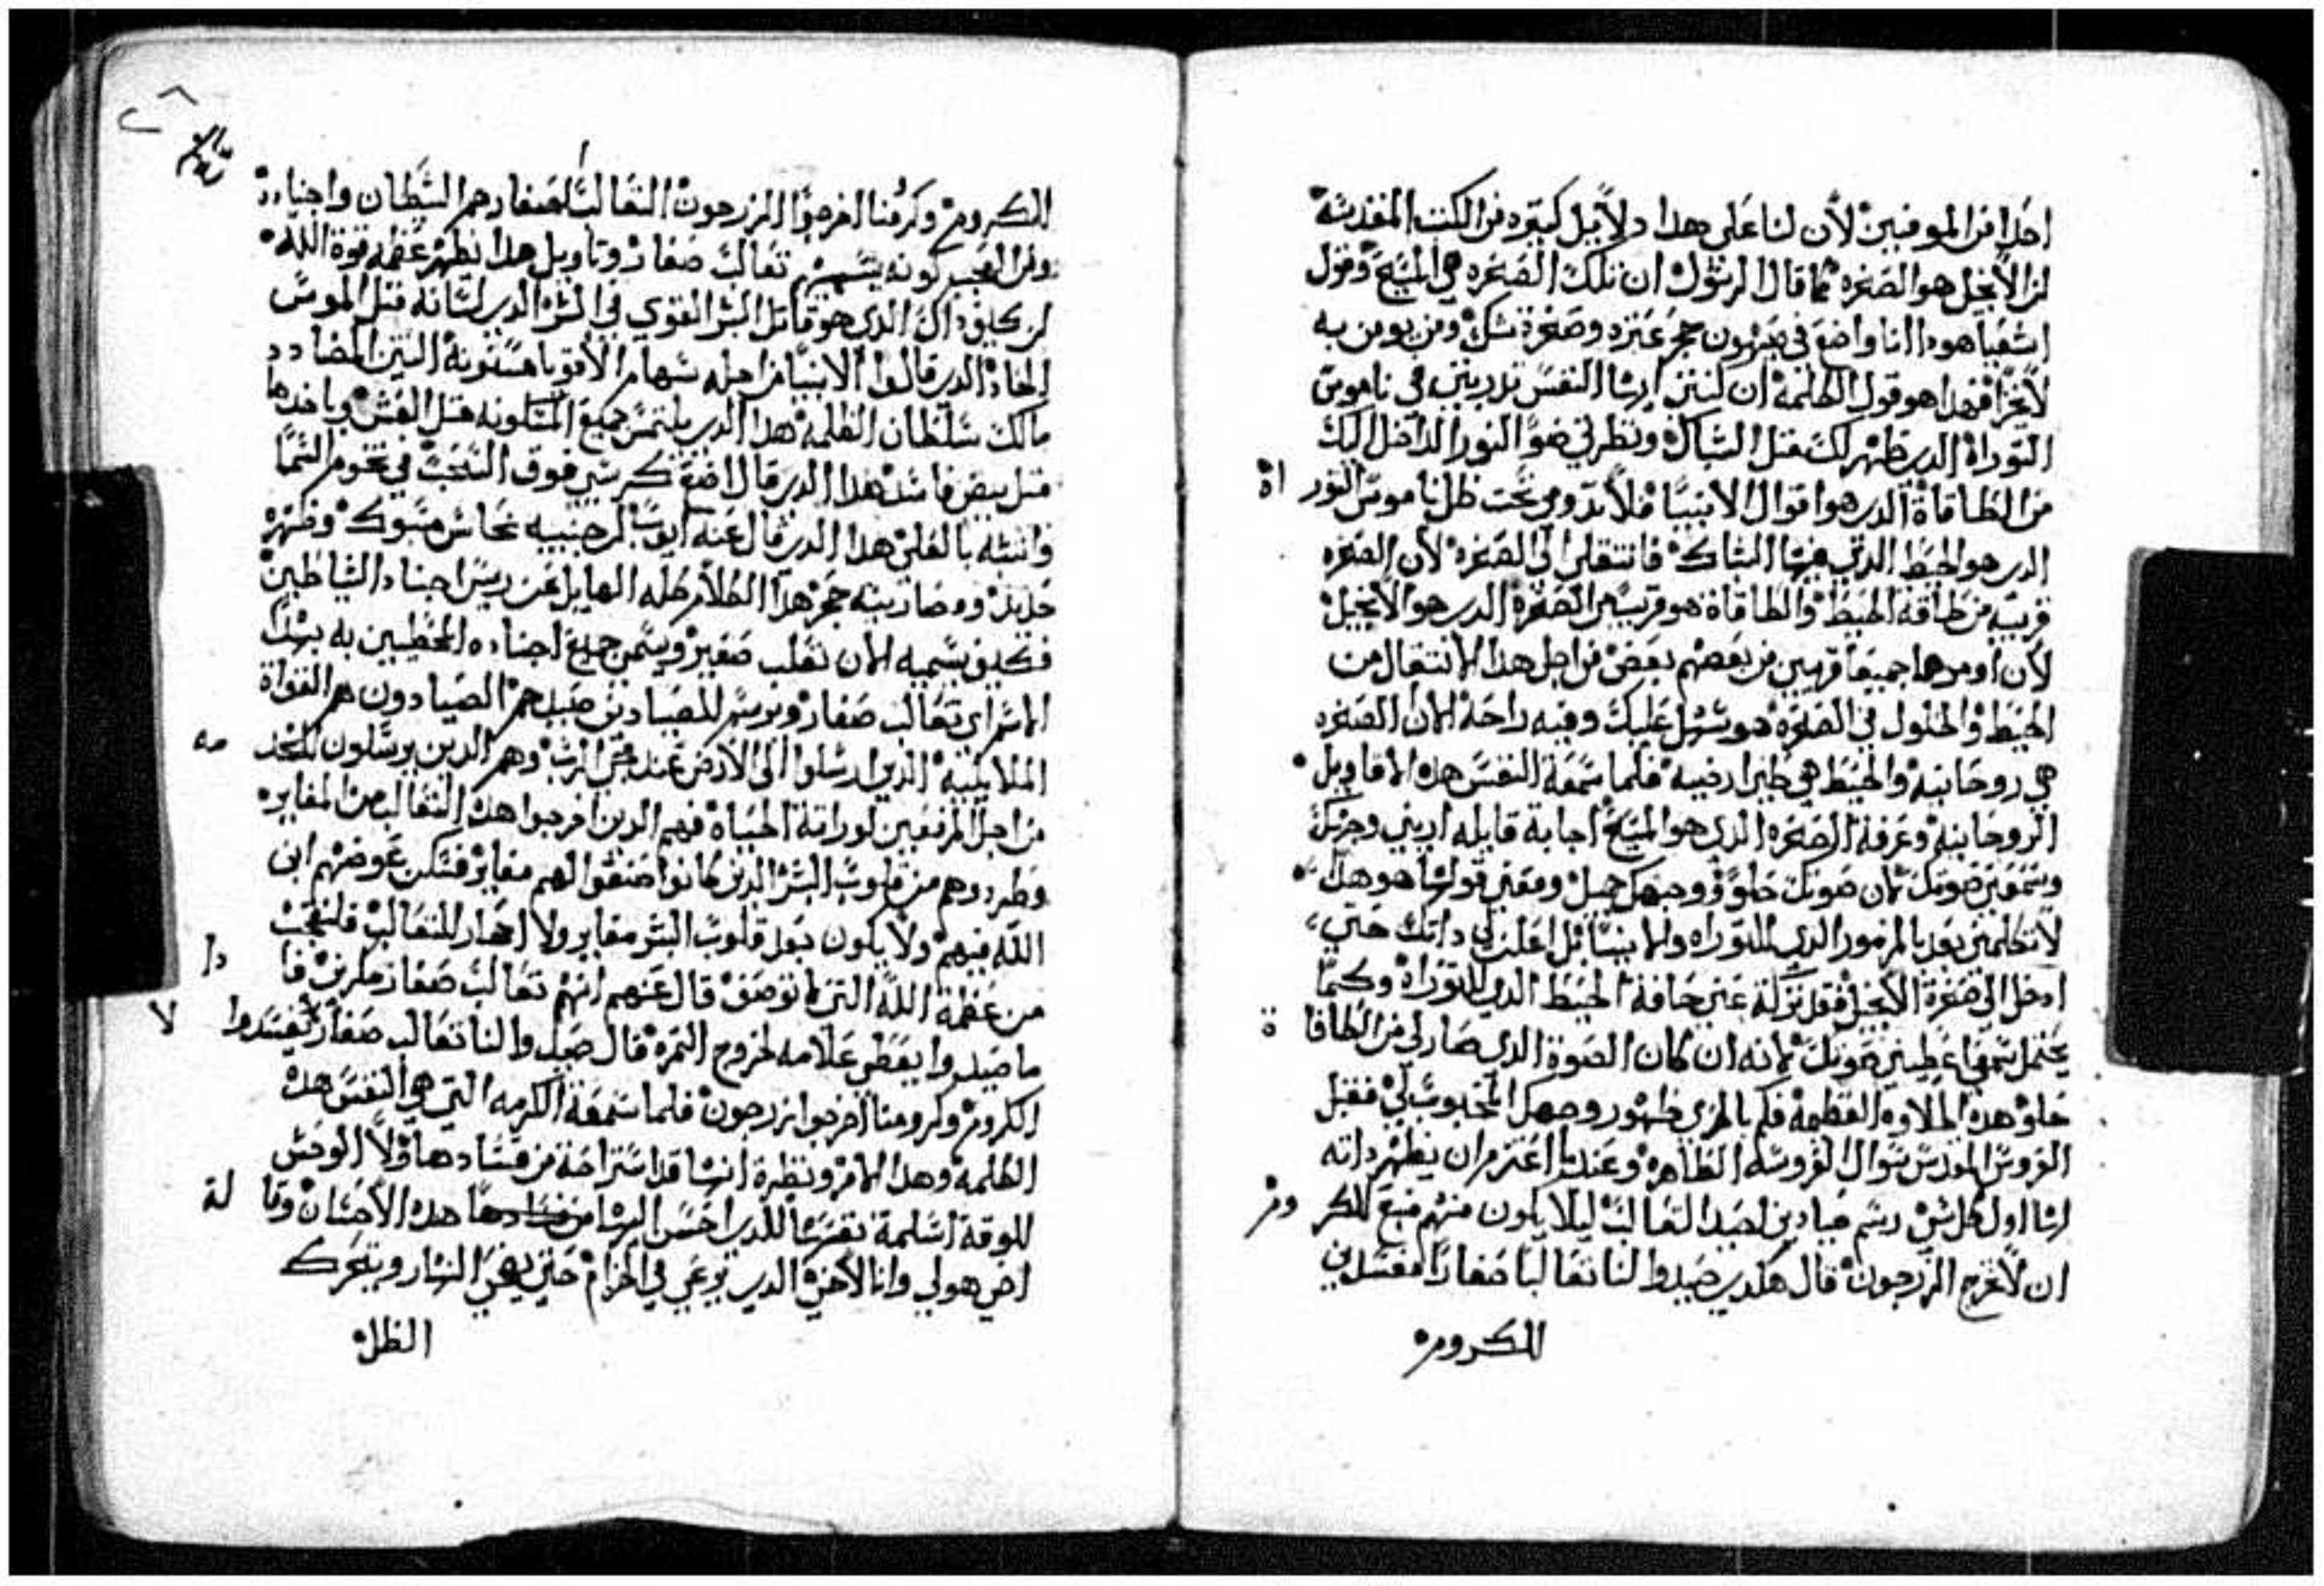 احدا من الموفيين لأن لنا على هدا دلايل كتيره من الكتب المقدسة
ان الانجيل هو الصخره كما قال الرسول ان تلك الصخره هي المسيح وقول
اشعيا هودا انا واضع في صهيون حجر عتره وصخرة شك ومن يومن به
لا يخزا فهدا هو قول الكلمة ان كنتي ايها النفس تدربتي في ناموس
التوراة الدي ظهر لك مثل الشباك ونظرتي ضو النور الداخل اليك
من الطاقاة الدي هو اقوال الانبيا فلا تدومي تحت ظل ناموس التوراة
الدي هو الحيط الدي فيها الشباك فانتقلي الى الصخره لأن الصخره
قريبه من طاقة الحيط والطاقاة هو قريب من الصخرة الدي هو الانجيل
لأن اومرهما جميعا قريبين من بعضهم بعض من اجل هدا الانتقال من
الحيط والحلول في الصخرة هو سهل عليك وفيه راحة لان الصخره
هي روحانية والحيط هي طين ارضية فلما سمعة النفس هده الاقاويل
الروحانية وعرفة الصخره الدي هو المسيح اجابة قايله اريني وجهك
وسمعني صوتك لان صوتك حلو ووجهك جميل ومعني قولها هو هدا
لا تكلمني بعد بالرموز الدي للتوراه والانبيا بل اعلن لي داتك حتي
ادخل الى صخرة الانجيل فقد تركة عني حافة الحيط الدي للتوراة وكما
يحتمل سمعي اعطيني صوتك لانه ان كان الصوة الدي صار لي من الطاقاة
حلو هده الحلاوه العظمة فكم بالحري ظهور وجهك المحبوب لي فقبل
العروس المقدس سوال العروسه الطاهره وعندما اعتزم ان يظهر داته
لها اول كل شي رسم صيادين لصيد التعالب ليلا يكون منهم منع للكروم
ان لا تخرج الزرجون قال هكدي صيدوا لنا تعالبا صغارا مفسدين
للكروم
الكروم وكرمنا اخرجوا الزرجون التعالب الصغار هم الشيطان واجناده
ومن العجب كونه يسميهم تعالب صغار وتاويل هدا يظهر عظم قوة الله
لن كيف داك الدي هو قاتل البشر القوي في الشر الدي لسانه مثل الموس
الحاد الدي قالوا الانبيا من اجله سهام الأقويا مسنونة التنين المضادد
مالك سلطان الظلمة هدا الدي يلتمس جميع المسكونه مثل العش وياخدها
مثل بيض فاسد هدا الدي قال اضع كرسي فوق السحب في تخوم السما
واتشبه بالعلي هدا الدي قال عنه ايوب ان جنبيه نحاس مسبوك وظهره
حديد ومصارينه حجر هدا الكلام كله الهايل عن رييس اجناد الشياطين
فكيف يسميه الان تعلب صغير ويسمي جميع اجناده المحيطين به بهدا
الاسم اي تعالب صغار ويرسم للصيادين صيدهم الصيادون هم القواة
الملايكية الدين ارسلوا الى الأرض عند مجي الرب وهم الدين يرسلون للخدمه
من اجل المزمعين لوراتة الحياة فهم الدين اخرجوا هده التعالب من المغاير
وطردوهم من قلوب البشر الدين كانوا صنعوا لهم مغاير فسكن عوضهم ابن
الله فيهم ولا يكون بعد قلوب البشر مغاير ولا احجار للتعالب فلنعجب
من عظمة الله التي لا توصف قال عنهم انهم تعالب صغار ماكرين فادا
ما صيدوا يعطى علامه لخروج التمرة قال صيدوا لنا تعالب صغار لالا تفسدوا
الكروم وكرومنا اخرجوا زرجون فلما سمعة الكرمه التي هي النفس هده
الكلمة وهدا الامر ونظرة انها قد استراحة من فساد هاولا الوحش
للوقت اسلمة نفسها للدي احسن اليها هده الاحسان وقالة
اخي هو لي وانا لأخي الدي يرعي في الخزام حتي يضي النهار ويتحرك
الظل